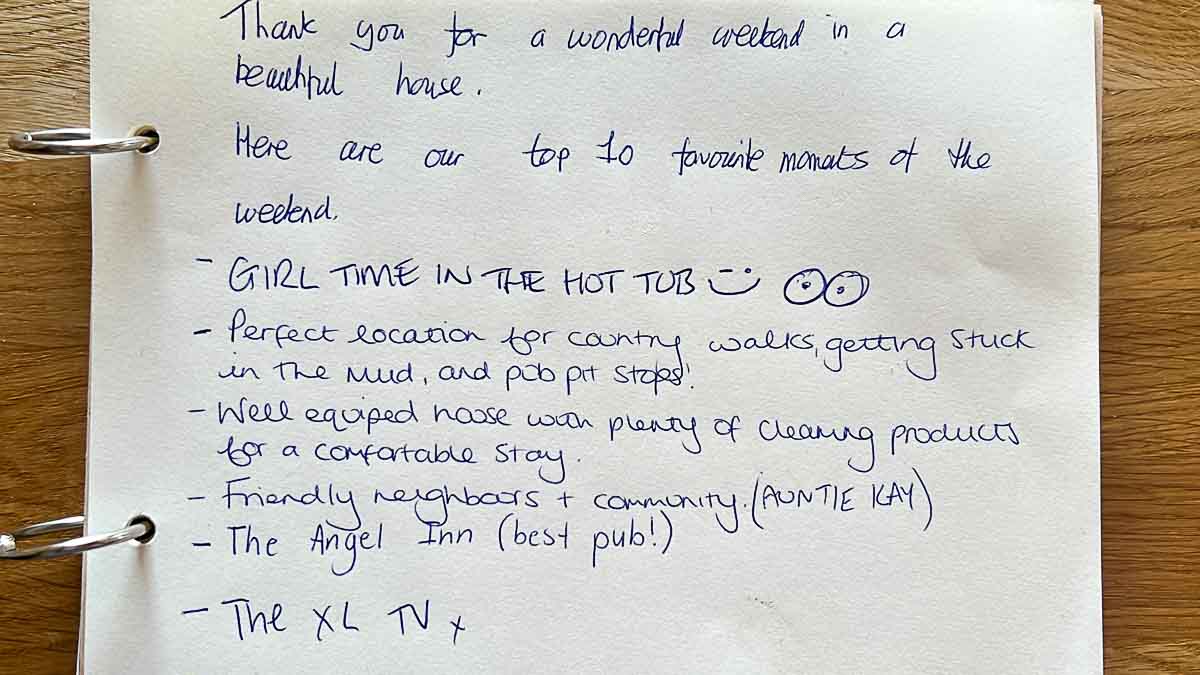 Thank you for a wonderful weekend in a
beautiful house.
Here are our top 10 favourite moments of the
weekend.
- GIRL TIME IN THE HOT TUB
- Perfect location for country walks, getting stuck
in the mud, and pub pit stops!
- Well equiped house with plenty of cleaning products
for a comfortable stay.
- Friendly neighbours + community. (AUNTIE KAY)
- The Angel Inn (best pub!)
- The XL TV x